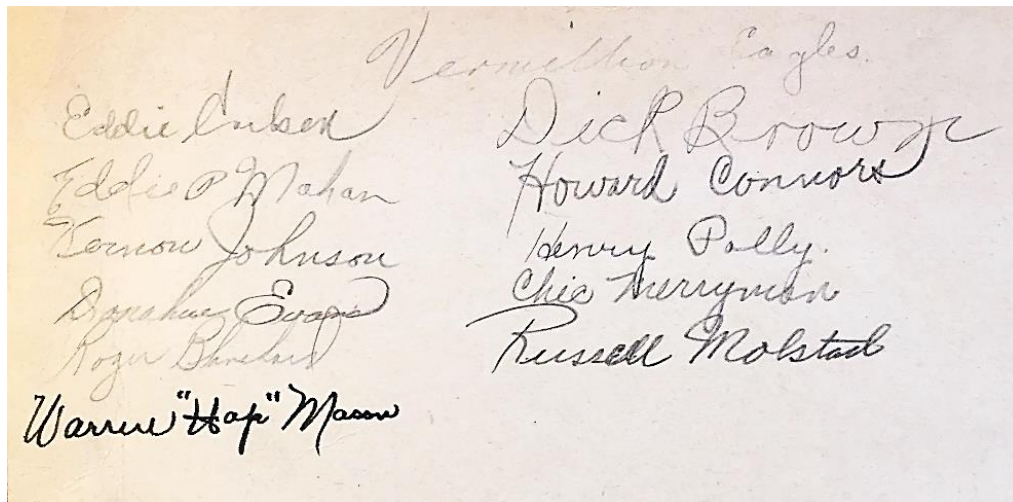 Vermillion Eagles.
Eddie Carlsen
Eddie P Mahan
Vernon Johnson
Donahue Evans
Roger Blanchard
Warren "Hap" Mason
Dick Brown
Howard Connors
Henry Polly.
Chic Merryman
Russell Molstad